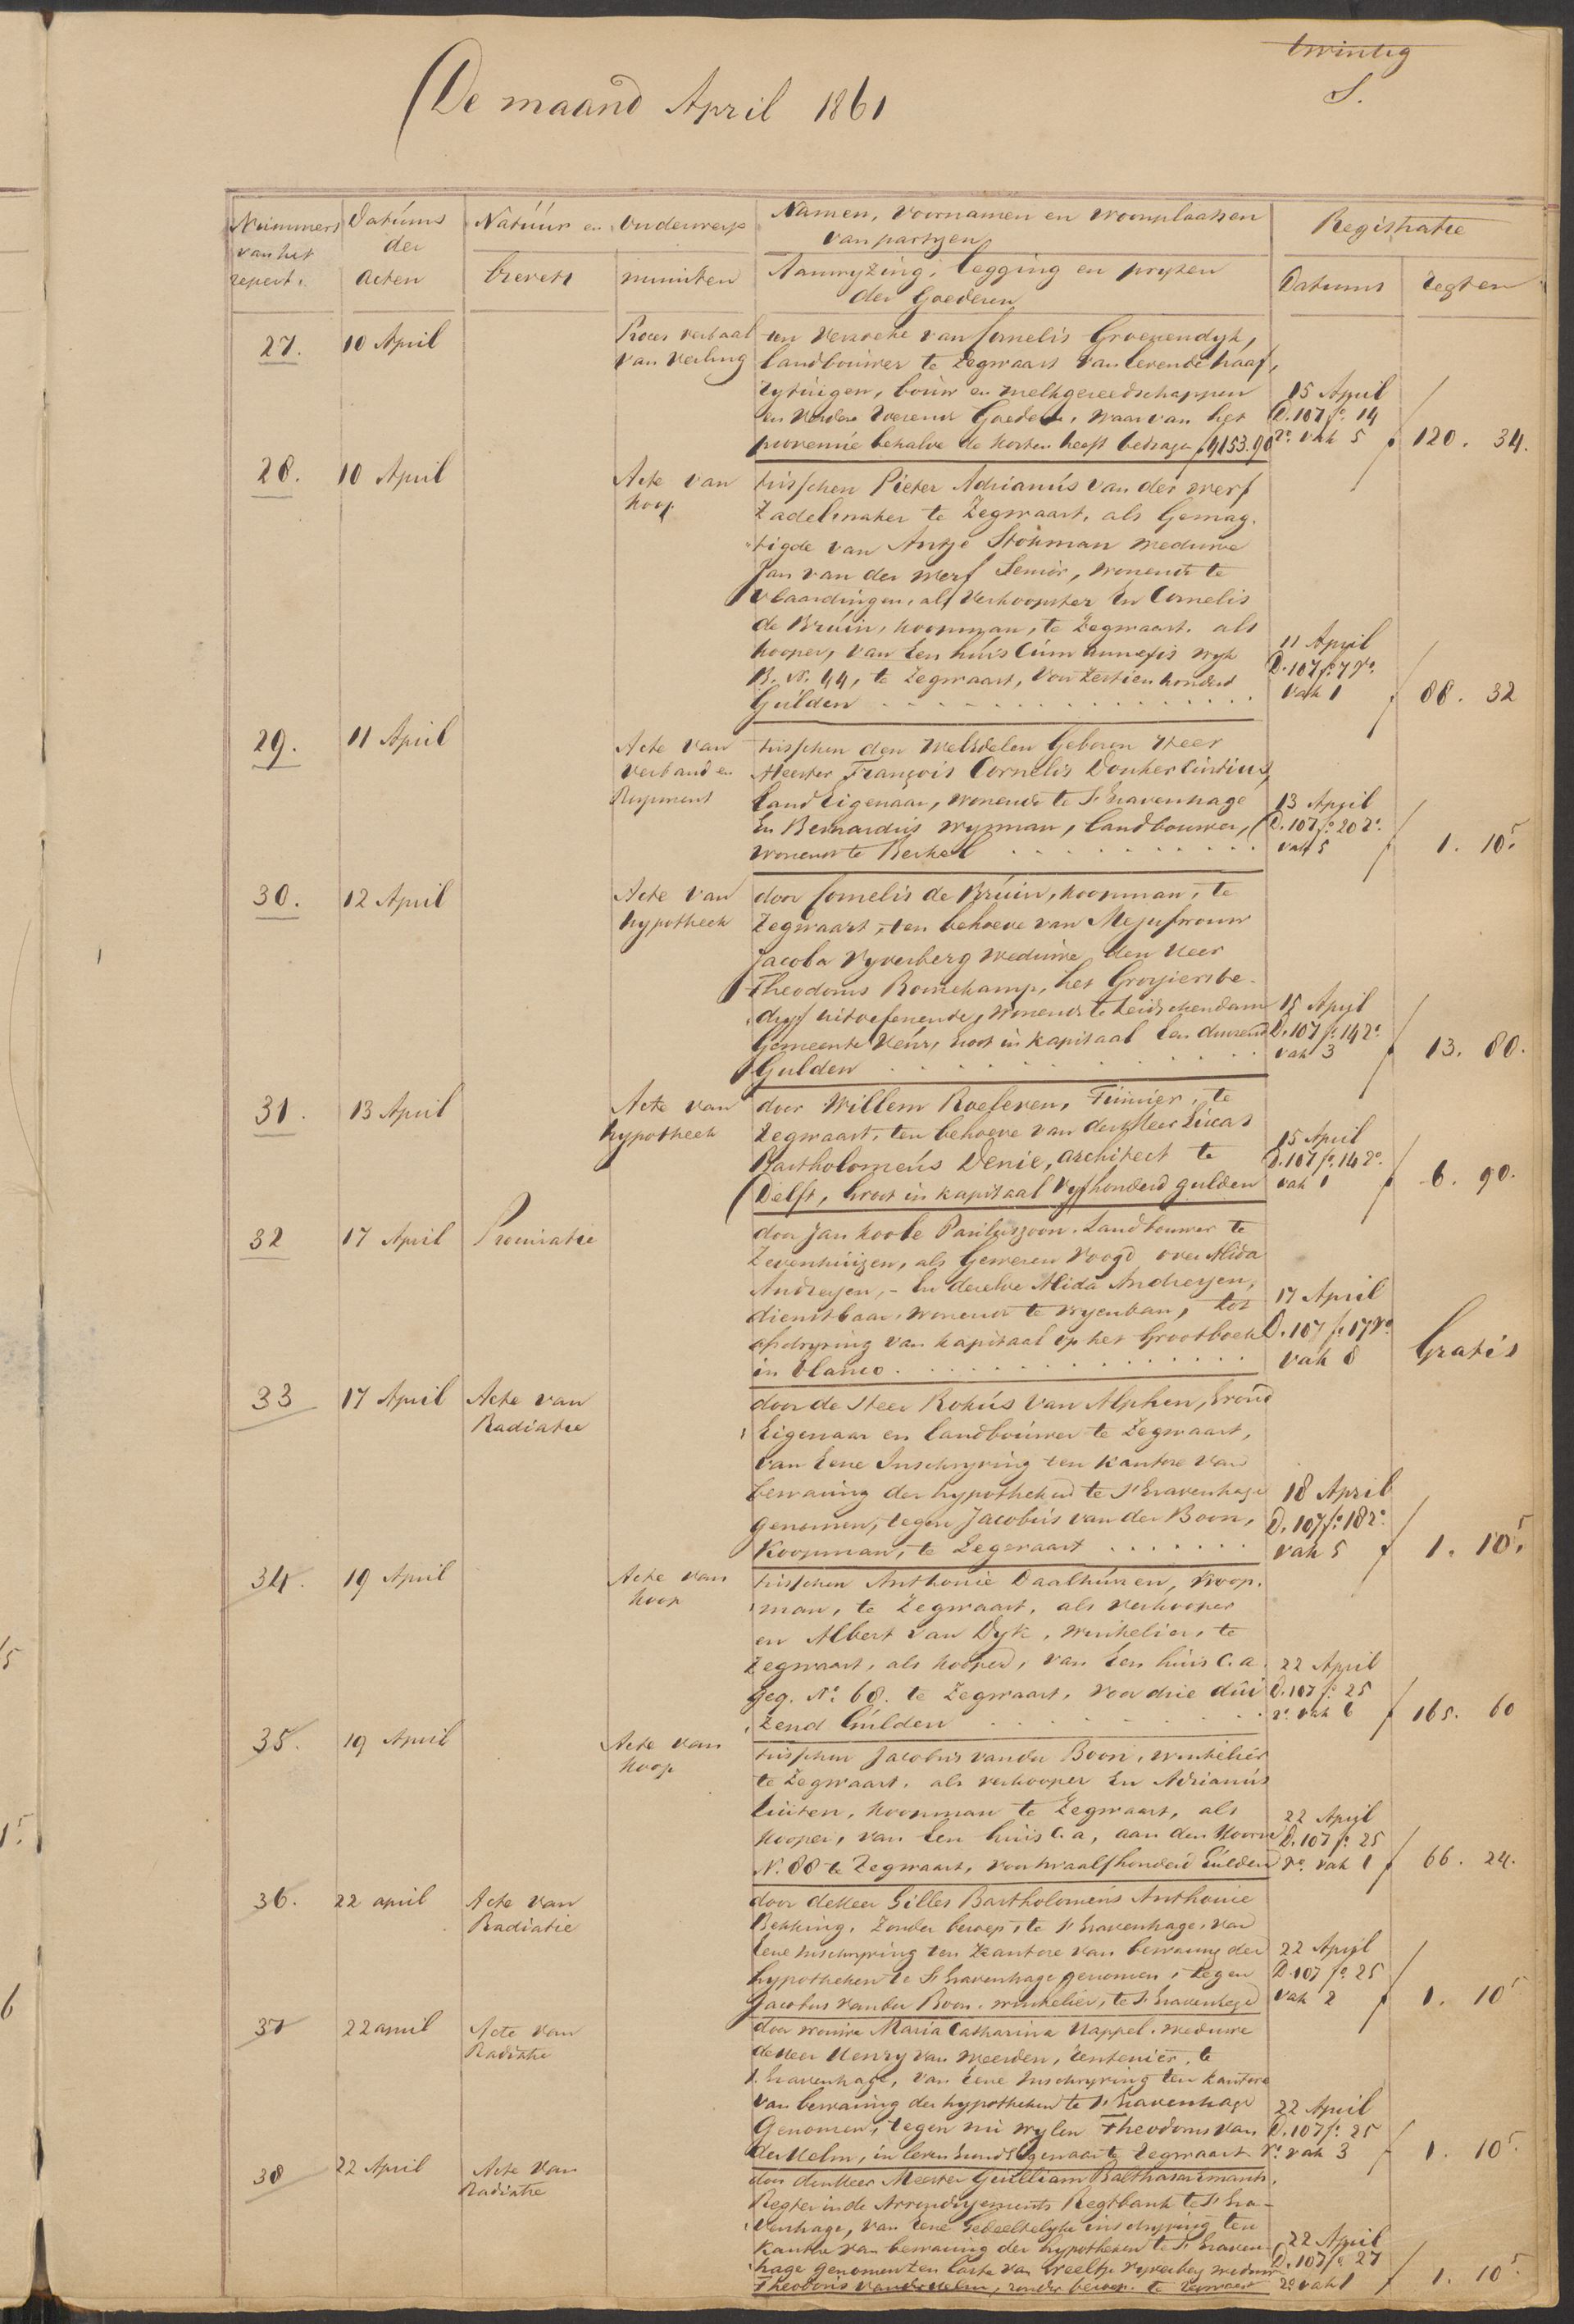 twintig
S.
De maand April 1861
Nummers van het repert.
Datums der acten
Natuur en Onderwerp
brevets
minuten
Namen, voornamen en woonplaatsen
van partyen
Aanwyzing, legging en pryzen
der Goederen
Registratie
Datums
regten
27. 10 April
Proces verbaal
van veiling
ten verzoeke van Cornelis Groenendyk,
landbouwer te Zegwaart van levende haaf,
rytuigen, bouw en melkgereedschappen
en verdere roerende Goederen, waarvan het
provenue behalve de kosten heeft bedragen f 4153.90
15 April
D. 107 fo. 14
ro. vak 5
f 120. 34.
28. 10 April
Acte van
koop
tusschen Pieter Adrianus van der Werf
Zadelmaker te Zegwaart, als Gemag-
tigde van Antje Stokman weduwe
Jan van der Werf Senior, wonende te
Vlaardingen, als Verkoopster En Cornelis
de Bruin, koopman, te Zegwaart, als
kooper, van Een huis Cum annexis wyk
B. N. 44, te Zegwaart, voor zestien honderd
Gulden
11 April
D. 107 fo. 7 vo.
vak 1
f 88. 32
29. 11 April
Acte van
verband en
tusschen den Weledelen Geboren Heer
Meester François Cornelis Donker Curtius,
Land Eigenaar, wonende te 's Gravenhage
En Bernardus Wysman, landbouwer,
wonende te Berkel
13 April
D. 107 fo. 20 ro.
vak 5
f 1. 10.5
30. 12 April
Acte van
hypotheek
door Cornelis de Bruin, koopman, te
Zegwaart, ten behoeve van Mejufvrouw
Jacoba Vyverberg weduwe den Heer
Theodorus Bornekamp, het Grosiersbe-
dryf uitoefenende, wonende te Leidschendam
Gemeente Veur, groot in kapitaal Een duizend
Gulden
15 April
D. 107 fo. 14 ro.
vak 3
f 13. 80.
31. 13 April
Acte van
hypotheek
door Willem Roeleven, Tuinier, te
Zegwaart, ten behoeve van den Heer Lucas
Bartholomeus Denie, architect te
Delft, Groot in kapitaal vyfhonderd gulden
15 April
D. 107 fo. 14 ro.
vak 1
f 6. 90.
32 17 April
Procuratie
door Jan Koole Pauluszoon, Landbouwer te
Zevenhuizen, als Geweren Voogd over Alida
Andreyen, - En dezelve Alida Andreyen,
dienstbaar, wonende te Nyenban, tot
afschryving van kapitaal op het Grootboek
in blanco
17 April
D. 107 fo. 17 vo
vak 8
Gratis
33 17 April
Acte van
Radiatie
door de Heer Rokus van Alphen, Grond
Eigenaar en landbouwer te Zegwaart,
van Eene Inschryving ten kantore van
bewaring der hypotheken te 's Gravenhage
genomen, tegen Jacobus van der Boon,
Koopman, te Zegwaart
18 April
D. 107 fo. 18 ro.
vak 5
f 1. 10.5
34. 19 April
Acte van
koop
tusschen Anthonie Daalhuizen, koop-
man, te Zegwaart, als verkooper
en Albert van Dyk, winkelier, te
Zegwaart, als kooper, van Een huis C. a.
geq. No. 68. te Zegwaart, voor drie dui
zend Gulden
22 April
D. 107 fo. 25
ro. vak 6
f 165. 60
35. 19 April
Acte van
koop
tusschen Jacobus van der Boon, winkelier
te Zegwaart, als verkooper En Adrianus
Luiten, koopman te Zegwaart, als
kooper, van Een huis C. a, aan den Hoorn
N. 88 te Zegwaart, voor twaalfhonderd Gulden
22 April
D. 107 fo. 25
ro. vak 1
f 66. 24.
36. 22 april
Acte van
Radiatie
door de Heer Gilles Bartholomeus Anthonie
Bekking, Zonder beroep, te 's Gravenhage, van
Eene inschryving ten Kantore van bewaring der
hypotheken te 's Gravenhage genomen, tegen
Jacobus van der Boon, winkelier, te 's Gravenhage
22 April
D. 107 fo. 25
vak 2
f 1. 10.5
37 22 april
Acte van
Radiatie
door vrouwe Maria Catharina Nappel, weduwe
de Heer Henry van Meerden, rentenier, te
's Gravenhage, van Eene Inschryving ten kantore
van bewaring der hypotheken te 's Gravenhage
Genomen, tegen nu wylen Theodorus van
der Helm, in leven Grond Eigenaar te Zegwaart
22 April
D. 107 fo. 25
ro. vak 3
f 1. 10.5
38 22 April
Acte van
Radiatie
door den Heer Meester Guilliam Balthasar Emants,
Regter in de Arrondissements Regtbank te 's Gra-
venhage, van Eene Gedeeltelyke inschryving ten
Kantore van bewaring der hypotheken te 's Graven-
hage genomen ten laste van Neeltje Vyverberg weduwe
Theodorus van der Helm, zonder beroep, te Zegwaart
22 April
D. 107 fo. 27
ro. vak 1
f 1. 10.5